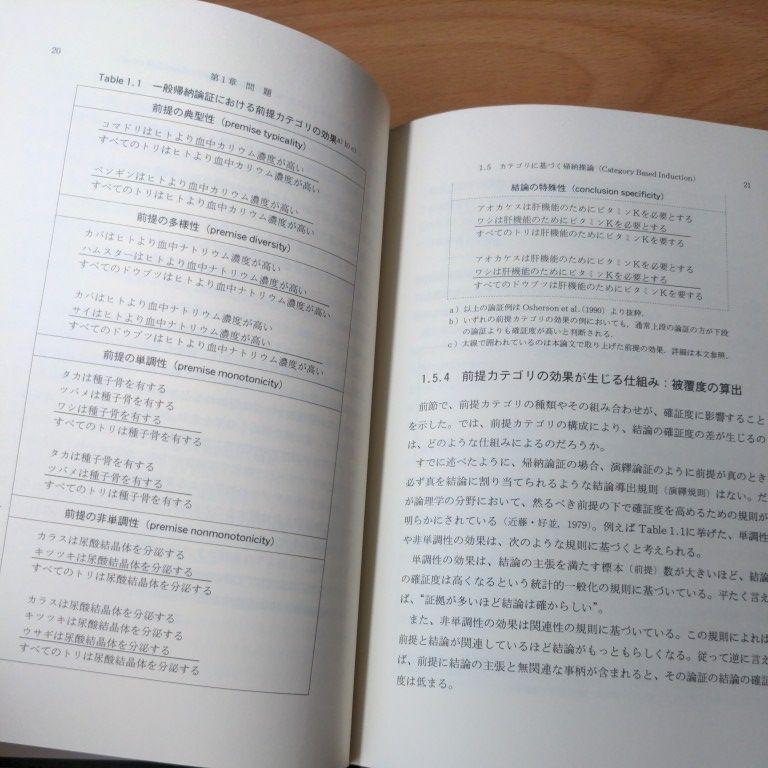 20
第1章 問 題
Table 1.1 一般帰納論証における前提カテゴリの効果a) b) c)
前提の典型性 (premise typicality)
コマドリはヒトより血中カリウム濃度が高い
すべてのトリはヒトより血中カリウム濃度が高い
ペンギンはヒトより血中カリウム濃度が高い
すべてのトリはヒトより血中カリウム濃度が高い
前提の多様性 (premise diversity)
カバはヒトより血中ナトリウム濃度が高い
ハムスターはヒトより血中ナトリウム濃度が高い
すべてのドウブツはヒトより血中ナトリウム濃度が高い
カバはヒトより血中ナトリウム濃度が高い
サイはヒトより血中ナトリウム濃度が高い
すべてのドウブツはヒトより血中ナトリウム濃度が高い
前提の単調性 (premise monotonicity)
タカは種子骨を有する
ツバメは種子骨を有する
ワシは種子骨を有する
すべてのトリは種子骨を有する
タカは種子骨を有する
ツバメは種子骨を有する
すべてのトリは種子骨を有する
前提の非単調性 (premise nonmonotonicity)
カラスは尿酸結晶体を分泌する
キツツキは尿酸結晶体を分泌する
すべてのトリは尿酸結晶体を分泌する
カラスは尿酸結晶体を分泌する
キツツキは尿酸結晶体を分泌する
ウサギは尿酸結晶体を分泌する
すべてのトリは尿酸結晶体を分泌する
1.5 カテゴリに基づく帰納推論 (Category Based Induction)
21
結論の特殊性 (conclusion specificity)
アオカケスは肝機能のためにビタミンKを必要とする
ワシは肝機能のためにビタミンKを必要とする
すべてのトリは肝機能のためにビタミンKを要する
アオカケスは肝機能のためにビタミンKを必要とする
ワシは肝機能のためにビタミンKを必要とする
すべてのドウブツは肝機能のためにビタミンKを要する
a) 以上の論証例は Osherson et al. (1990) より抜粋.
b) いずれの前提カテゴリの効果の例においても, 通常上段の論証の方が下段
の論証よりも確証度が高いと判断される.
c) 太線で囲われているのは本論文で取り上げた前提の効果. 詳細は本文参照.
1.5.4 前提カテゴリの効果が生じる仕組み:被覆度の算出
前節で、前提カテゴリの種類やその組み合わせが、確証度に影響すること
を示した。では、前提カテゴリの構成により、結論の確証度の差が生じるの
は、どのような仕組みによるのだろうか。
すでに述べたように、帰納論証の場合、演繹論証のように前提が真のとき
必ず真を結論に割り当てられるような結論導出規則 (演繹規則) はない。だ
が論理学の分野において、然るべき前提の下で確証度を高めるための規則が
明らかにされている (近藤・好並, 1979)。例えば Table 1.1に挙げた、単調性
や非単調性の効果は、次のような規則に基づくと考えられる。
単調性の効果は、結論の主張を満たす標本 (前提) 数が大きいほど、結論
の確証度は高くなるという統計的一般化の規則に基づいている。平たく言え
ば、“証拠が多いほど結論は確からしい”。
また、非単調性の効果は関連性の規則に基づいている。この規則によれば
前提と結論が関連しているほど結論がもっともらしくなる。従って逆に言え
ば、前提に結論の主張と無関連な事柄が含まれると、その論証の結論の確証
度は低まる。